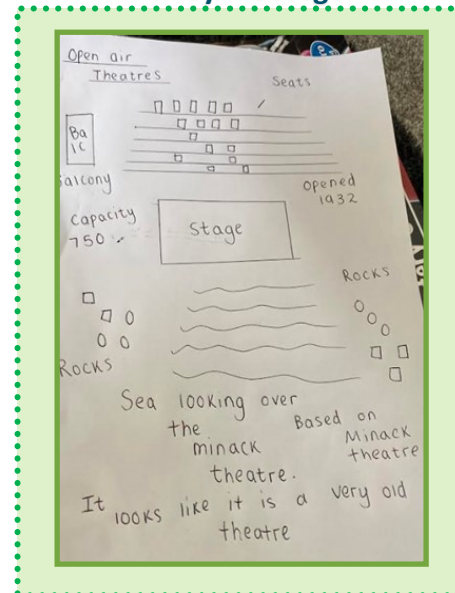 Open air
Theatres
Seats
Ba
lc
Balcony
Opened
1932
Capacity
750
Stage
Rocks
Rocks
Sea looking over
the
minack
theatre.
Based on
Minack
theatre
It looks like it is a very old
theatre